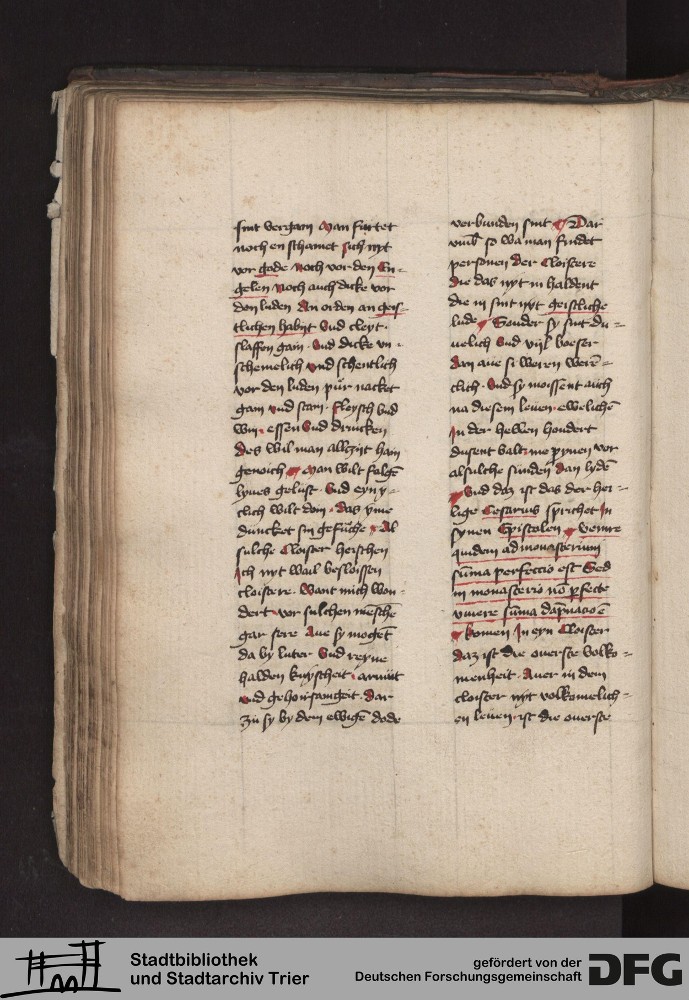 sint vergain Man furtet
noch en schamet sich nyt
vor gode Noch vor den En=
gelen Noch auch dicke vor
den luden An orden an geis=
tlichen habijt Vnd cleyt.
slaffen gain. Vnd dicke vn=
schemelich vnd schentlich
vor den luden pür nacket
gain vnd stain. Fleysch vnd
win. essen Vnd drincken
Des wil man allzijt hain
genoich Man wilt folgē
lyues gelust. Vnd eyn y=
clich wilt doin. Das yme
duncket sin gefuche Al
sulche Cloister heischen
Ich nyt wail besloissen
cloistere. Want mich won=
dert. vor sulchen mēsche
gar sere Aue sy mogēt
da by luter Vnd reyne
halden kuyscheit. armüt
vnd gehoirsamgeit. Dar
zü sy by dem ewigē dode
verbunden sint Dar
vmb so wa man findet
personen der Cloistere
die das nyt in haldent
die in sint nyt geistliche
lude Sonder sy sint du=
uelich Vnd vijl boeser
dan aue si weren werē=
clich. Vnd sy moissent auch
na diesem leuen ewelichē
In der hellen hondert
dusent valt me pynen vor
alsulche sunden dan lydē
Vnd daz ist das der hei=
lige Cesarius sprichet In
synen Epistolen venire
quidem ad monasterium
sūma perfeccio est Sed
in monasterio nō pfecte
viuere sūma dāpnacio ē
komen In eyn Cloister
daz ist die ouerste volko=
menheit. Auer in dem
cloister nyt volkomelich=
en leuen. ist die ouerste
Stadtbibliothek
und Stadtarchiv Trier
gefördert von der
Deutschen Forschungsgemeinschaft
DFG